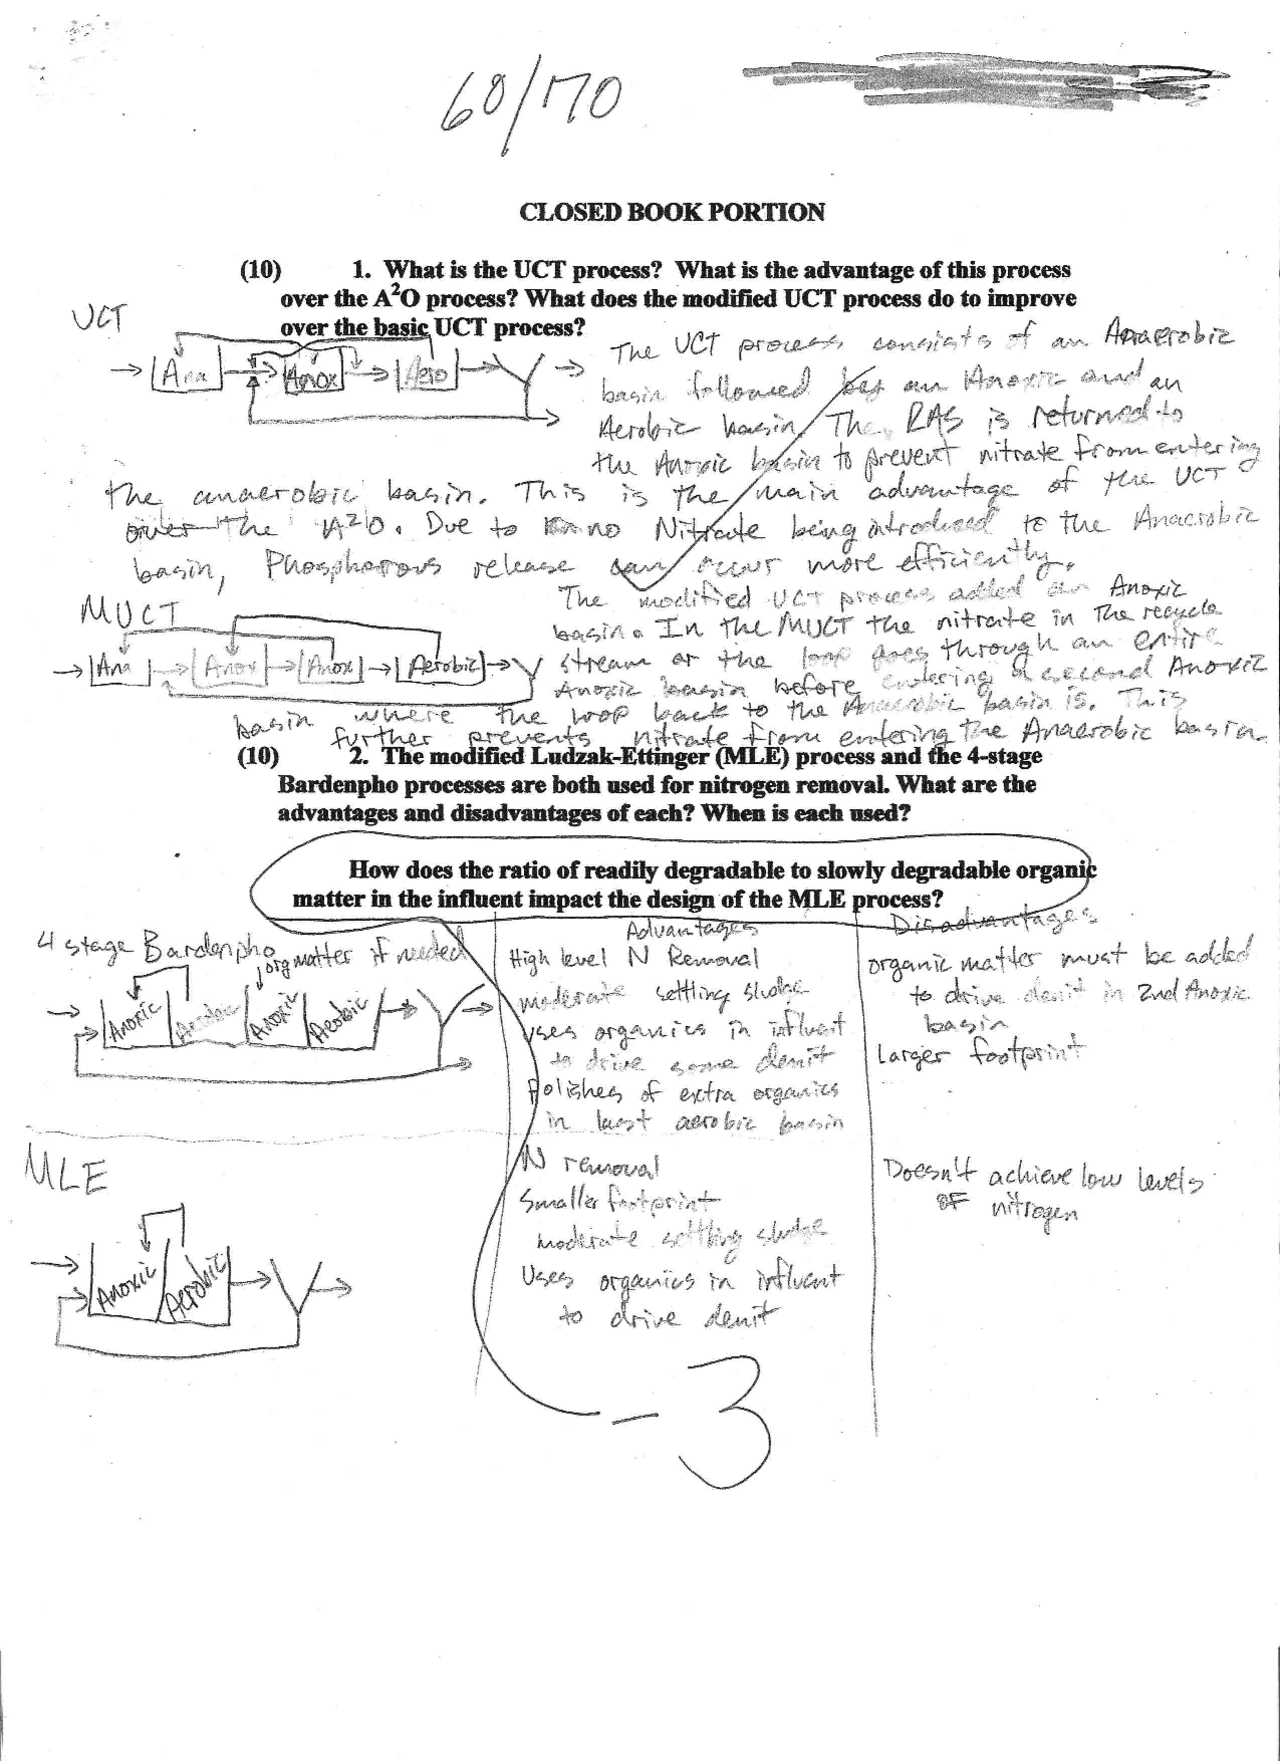 68/70
CLOSED BOOK PORTION
(10) 1. What is the UCT process? What is the advantage of this process
over the A²O process? What does the modified UCT process do to improve
over the basic UCT process?
UCT
Ana Anox Aero
The UCT process consists of an Anaerobic
basin followed by an Anoxic and an
Aerobic basin. The RAS is returned to
the Anoxic basin to prevent nitrate from entering
the anaerobic basin. This is the main advantage of the UCT
over the A²O. Due to no Nitrate being introduced to the Anaerobic
basin, Phosphorous release can occur more efficiently.
MUCT
Ana Anox Anox Aerobic
The modified UCT process added an Anoxic
basin. In the MUCT the nitrate in the recycle
stream or the loop goes through an entire
Anoxic basin before entering a second Anoxic
basin where the loop back to the Anaerobic basin is. This
further prevents nitrate from entering the Anaerobic basin.
(10) 2. The modified Ludzak-Ettinger (MLE) process and the 4-stage
Bardenpho processes are both used for nitrogen removal. What are the
advantages and disadvantages of each? When is each used?
How does the ratio of readily degradable to slowly degradable organic
matter in the influent impact the design of the MLE process?
4 stage Bardenpho
org matter if needed
Anoxic Aerobic Anoxic Aerobic
Advantages
High level N Removal
moderate settling sludge
Uses organics in influent
to drive some denit
Polishes of extra organics
in last aerobic basin
Disadvantages
organic matter must be added
to drive denit in 2nd Anoxic
basin
Larger footprint
MLE
Anoxic Aerobic
N removal
Smaller footprint
moderate settling sludge
Uses organics in influent
to drive denit
Doesn't achieve low levels
of nitrogen
-3